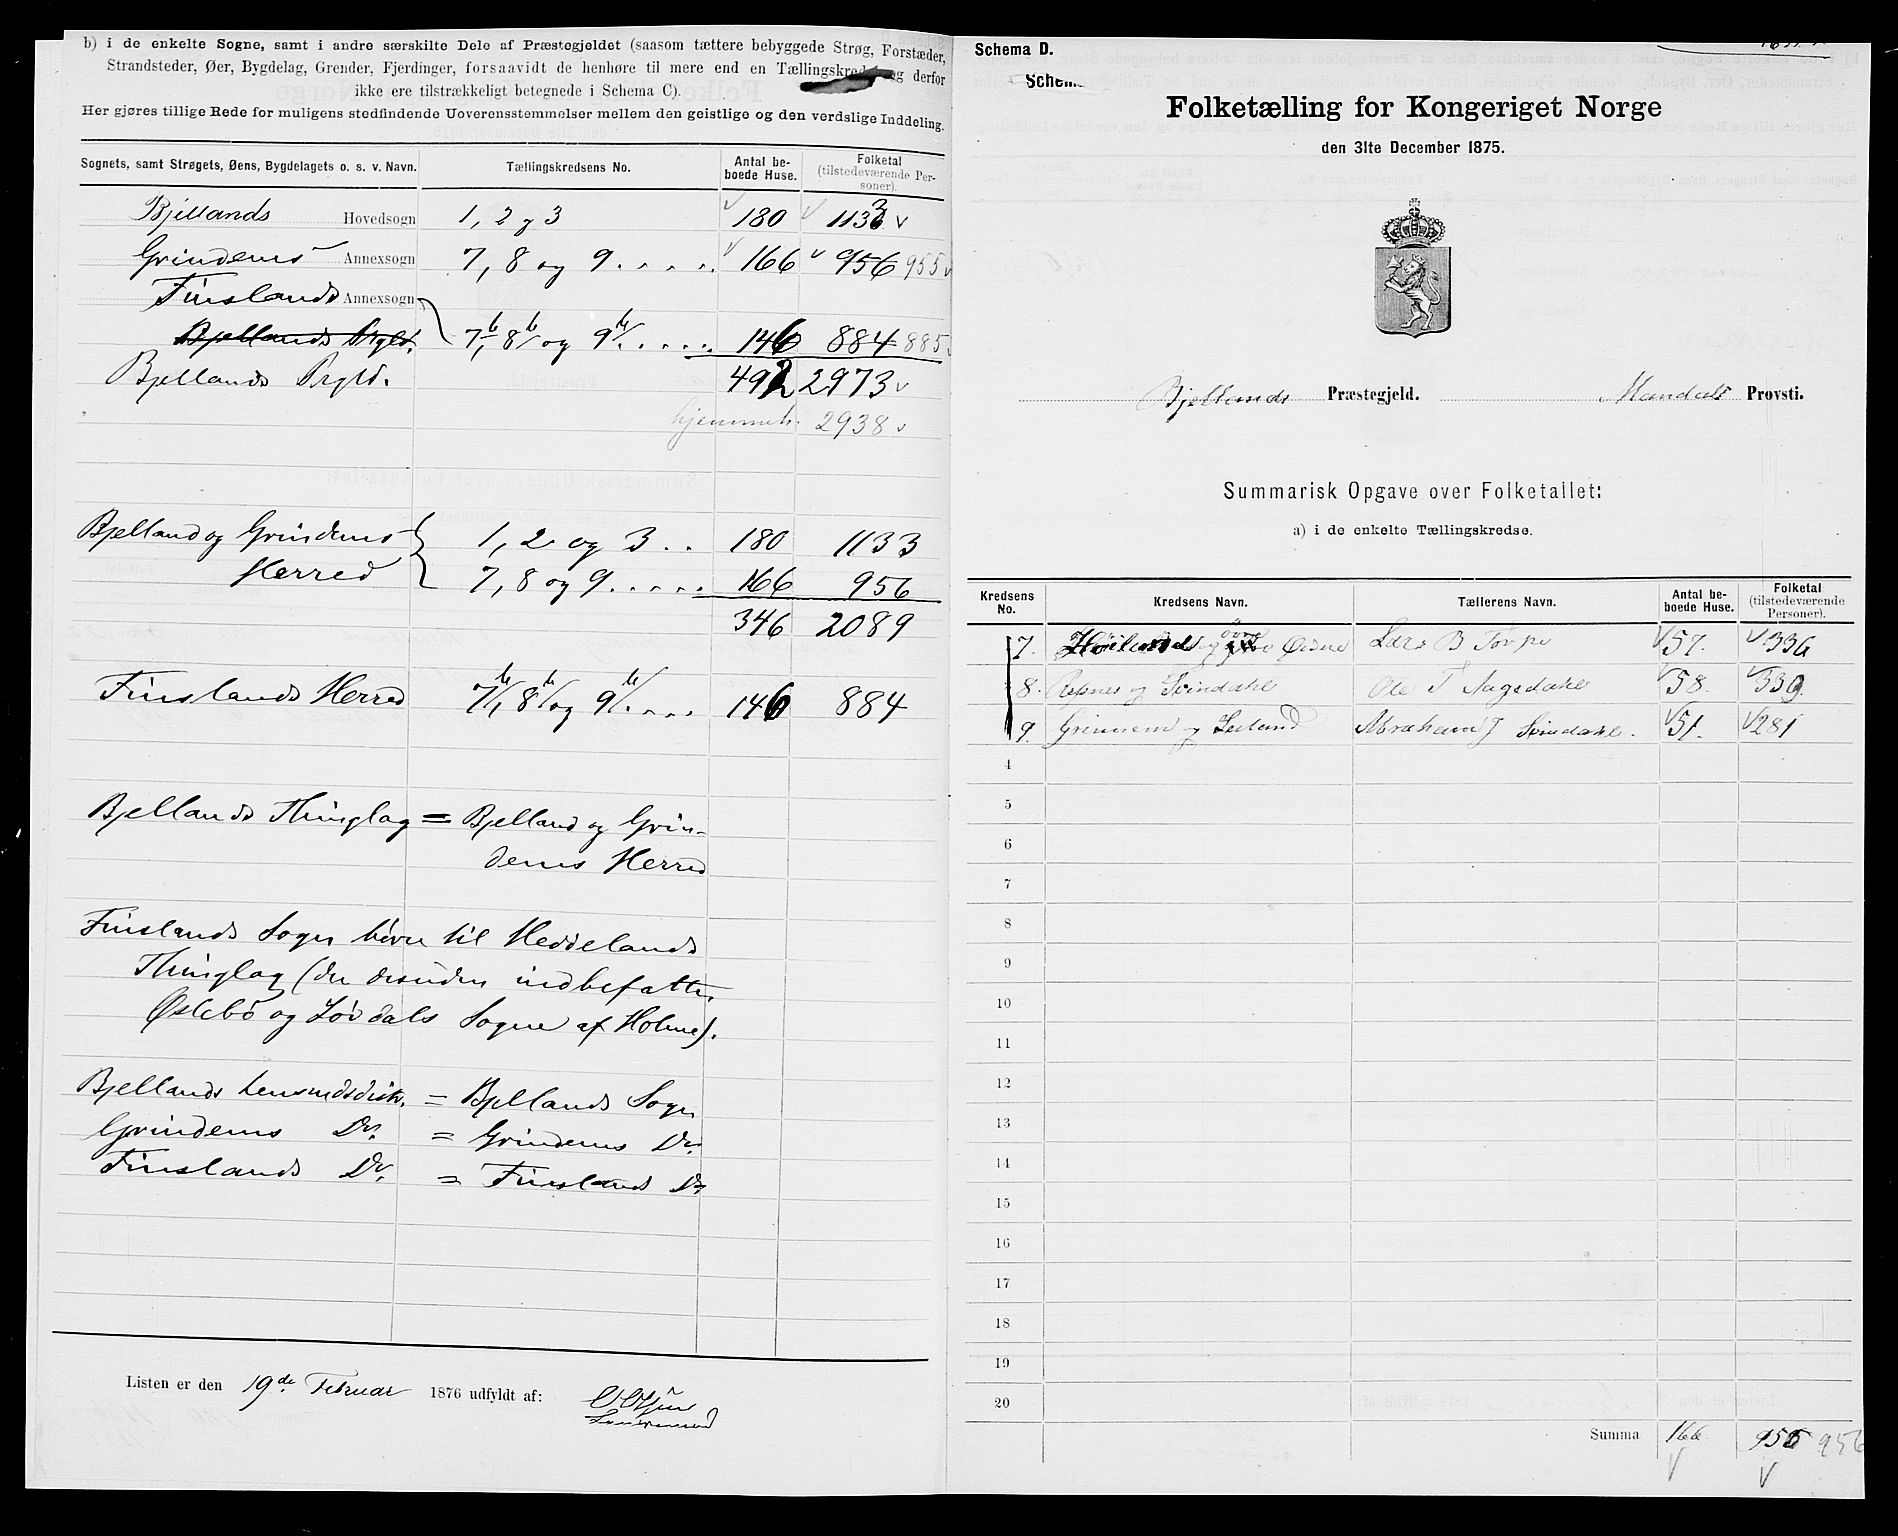 b) i de enkelte Sogne, samt i andre særskilte Dele af Præstegjeldet (saasom tættere bebyggede Strøg, Forstæder,
Strandsteder, Øer, Bygdelag, Grender, Fjerdinger, forsaavidt de henhøre til mere end en Tællingskreds og derfor
ikke ere tilstrækkeligt betegnede i Schema C).
Her gjøres tillige Rede for muligens stedfindende Uoverensstemmelser mellem den geistlige og den verdslige Inddeling.
Sognets, samt Strøgets, Øens, Bygdelagets o. s. v. Navn. Tællingskredsens No. Antal beboede Huse. Folketal (tilstedeværende Personer).
Bjellands Hovedsogn 1, 2 og 3 180 1133
Grindems Annexsogn 7, 8 og 9 . . . . 166 956 955
Finslands Annexsogn
Bjellands Prgld. 7b, 8b og 9b . . . . 146 884 885
Bjellands Prgld. 492 2973
hjemmeh. 2938
Bjelland og Grindems 1, 2 og 3 . . 180 1133
Herred 7, 8 og 9 . . . . . 166 956
346 2089
Finslands Herred 7b, 8b og 9b . . . . 146 884
Bjellands Thinglag = Bjelland og Grin-
dems Herred
Finslands Sogn hører til Heddelands
Thinglag (der desuden indbefatter
Øslebö og Løvdals Sogne af Holme).
Bjellands Lensmdsdistr. = Bjellands Sogn
Grindems Do. = Grindems Do.
Finslands Do. = Finslands Do.
Listen er den 19de Februar 1876 udfyldt af:
Lensmand
Schema D.
Schem
Folketælling for Kongeriget Norge
den 31te December 1875.
Bjellands Præstegjeld. Mandals Provsti.
Summarisk Opgave over Folketallet:
a) i de enkelte Tællingskredse.
Kredsens No. Kredsens Navn. Tællerens Navn. Antal beboede Huse. Folketal (tilstedeværende Personer).
7. Høilands og øvre Øidne Lars B Torpe 57. 336
8. Refsnes og Svindahl Ole T Aagedahl 58. 339
9. Grinnem og Leland Abraham T Svindahl. 51. 281
4
5
6
7
8
9
10
11
12
13
14
15
16
17
18
19
20
Summa 166 956 956